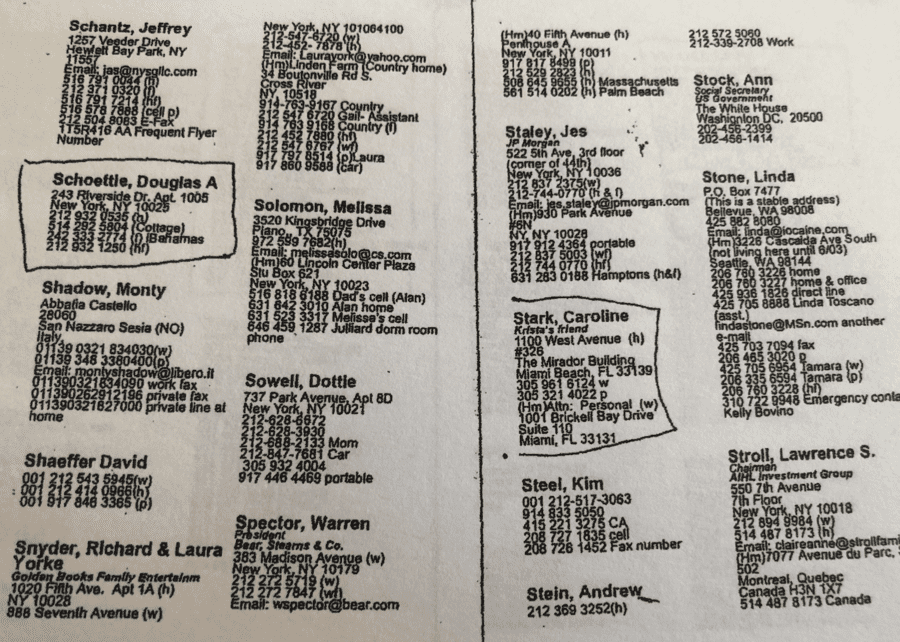 Schantz, Jeffrey
1257 Veeder Drive
Hewlett Bay Park, NY
11557
Email: jas@nysgllc.com
516 791 0044
212 371 0320 (f)
516 791 7214 (hf)
516 578 7888 (cell p)
212 504 8083 E-Fax
1T5R416 AA Frequent Flyer
Number
Schoettle, Douglas A
243 Riverside Dr. Apt. 1005
New York, NY 10025
212 932 0535 (h)
514 292 5804 (Cottage)
242 333 2774 (f) Bahamas
212 932 1250 (hf)
Shadow, Monty
Abbafia Castello
28060
San Nazzaro Sesia (NO)
Italy
01139 0321 834030(w)
01139 348 3380400(p)
Email: montyshadow@libero.it
011390321834090 work fax
011390262912196 private fax
011390321827000 private line at
home
Shaeffer David
001 212 543 5945(w)
001 212 414 0966(h)
001 917 846 3365 (p)
Snyder, Richard & Laura
Yorke
Golden Books Family Entertainm
1020 Fifth Ave. Apt 1A (h)
NY 10028
888 Seventh Avenue (w)
New York, NY 101064100
212-547-6720 (w)
212-452- 7878 (h)
Email: Laurayork@yahoo.com
(Hm)Linden Farm (Country home)
34 Boutonville Rd S.
Cross River
NY, 10518
914-763-9167 Country
212 547 6720 Gail- Assistant
914 763 9168 Country (f)
212 452 7880 (hf)
212 547 6767 (wf)
917 797 8514 (p)Laura
917 860 9588 (car)
Solomon, Melissa
3520 Kingsbridge Drive
Plano,, TX 75075
972 599 7682(h)
Email: melissasolo@cs.com
(Hm)60 Lincoln Center Plaza
Stu Box 621
New York, NY 10023
516 818 6188 Dad's cell (Alan)
631 642 3010 Alan home
631 523 3317 Melissa's cell
646 459 1287 Julliard dorm room
phone
Sowell, Dottie
737 Park Avenue, Apt 8D
New York, NY 10021
212-628-6672
212-628-3930
212-688-2133 Mom
212-847-7681 Car
305 932 4004
917 446 4469 portable
Spector, Warren
President
Bear, Stearns & Co.
383 Madison Avenue (w)
New York, NY 10179
212 272 5719 (w)
212 272 7847 (wf)
Email: wspector@bear.com
(Hm)40 Fifth Avenue (h)
Penthouse A
New York, NY 10011
917 817 8499 (p)
212 529 2823 (h)
508 645 9655 (h) Massachusetts
561 514 0202 (h) Palm Beach
Staley, Jes
JP Morgan
522 5th Ave, 3rd floor
(corner of 44th)
New York, NY 10036
212 837 2375(w)
212-744-0770 (h & f)
Email: jes.staley@jpmorgan.com
(Hm)930 Park Avenue
#6N
NY, NY 10028
917 912 4364 portable
212 837 5003 (wf)
212 744 0770 (hf)
631 283 0188 Hamptons (h&f)
Stark, Caroline
Krista's friend
1100 West Avenue (h)
#326
The Mirador Building
Miami Beach, FL 33139
305 961 6124 w
305 321 4022 p
(Hm)Attn: Personal (w)
1001 Brickell Bay Drive
Suite 110
Miami, FL 33131
Steel, Kim
001 212-517-3063
914 833 5050
415 221 3275 CA
208 727 1835 cell
208 726 1452 Fax number
Stein, Andrew
212 369 3252(h)
212 572 5060
212-339-2708 Work
Stock, Ann
Social Secretary
US Government
The White House
Washington DC, 20500
202-456-2399
202-456-1414
Stone, Linda
P.O. Box 7477
(This is a stable address)
Bellevue, WA 98008
425 882 8080
Email: linda@iocaine.com
(Hm)3226 Cascadia Ave South
(not living here until 6/03)
Seattle, WA 98144
206 760 3226 home
206 760 3227 home & office
425 936 1826 direct line
425 705 8988 Linda Toscano
(asst.)
lindastone@MSn.com another
e-mail
425 703 7094 fax
206 465 3020 p
425 705 6954 Tamara (w)
206 335 6594 Tamara (p)
206 760 3228 (hf)
310 722 9948 Emergency conta
Kelly Bovino
Stroll, Lawrence S.
Chairman
AIHL Investment Group
550 7th Avenue
7th Floor
New York, NY 10018
212 894 9984 (w)
514 487 8173 (h)
Email: claireanne@strollfami
(Hm)7077 Avenue du Parc,
502
Montreal, Quebec
Canada H3N 1X7
514 487 8173 Canada